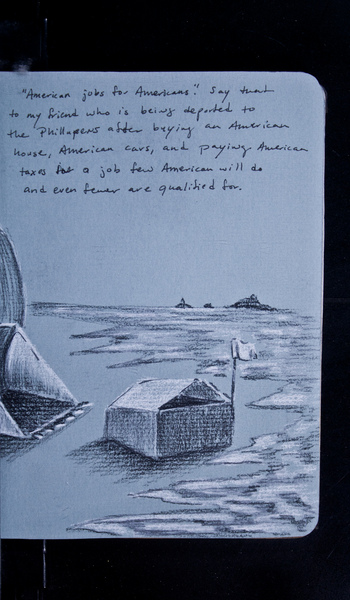 "American jobs for Americans". Say that
to my friend who is being deported to
the Phillapens after buying an American
house, American cars, and paying American
taxes for a job few American will do
and even fewer are qualified for.